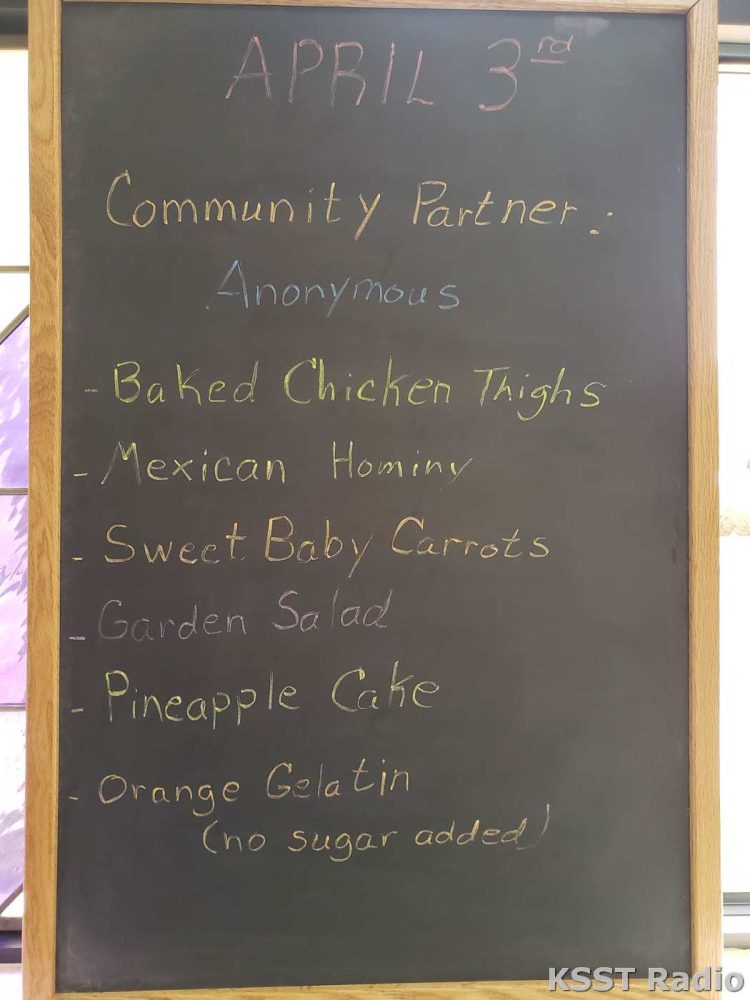 APRIL 3rd
Community Partner:
Anonymous
- Baked Chicken Thighs
- Mexican Hominy
- Sweet Baby Carrots
- Garden Salad
- Pineapple Cake
- Orange Gelatin
(no sugar added)
KSST Radio